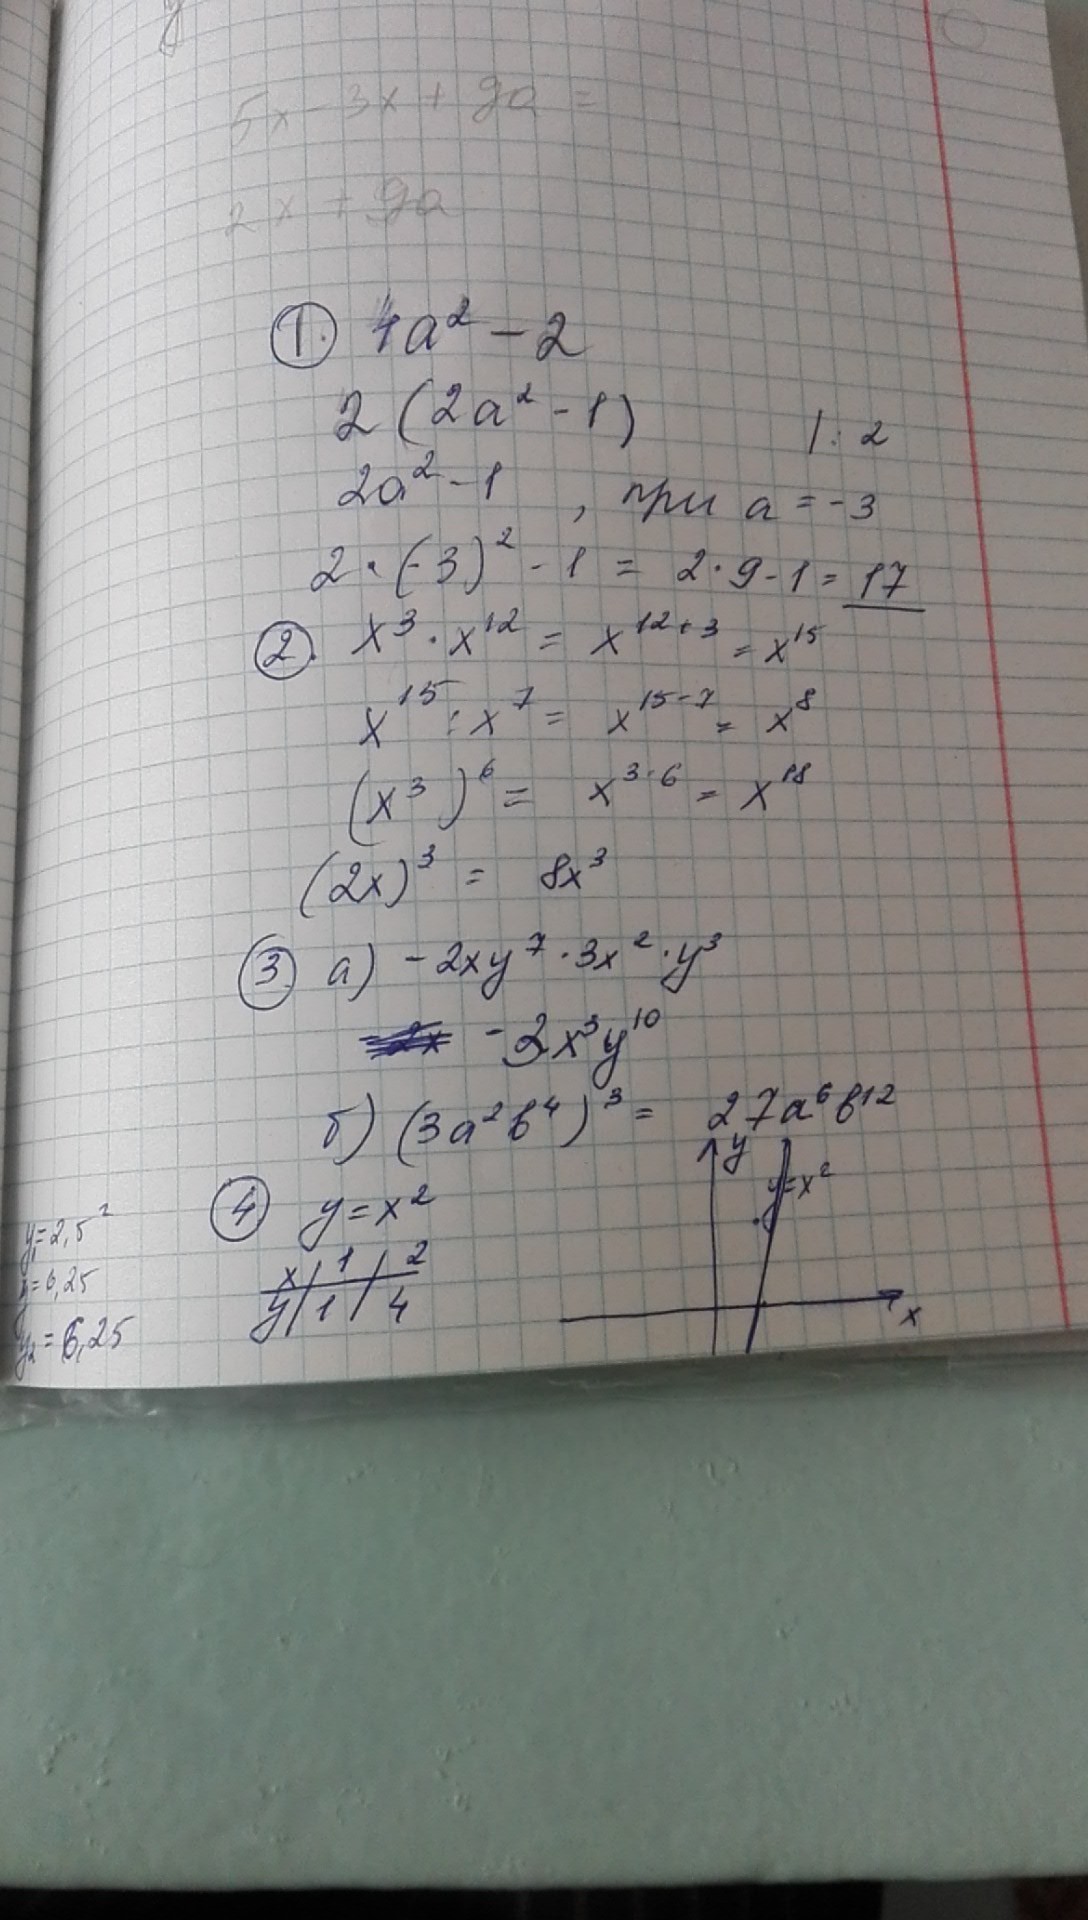 5x - 3x + 9a =
2x + 9a
1. 4a² - 2
2 (2a² - 1) | : 2
2a² - 1 , при a = -3
2 · (-3)² - 1 = 2 · 9 - 1 = 17
2. x³ · x¹² = x¹²⁺³ = x¹⁵
x¹⁵ : x⁷ = x¹⁵⁻⁷ = x⁸
(x³)⁶ = x³·⁶ = x¹⁸
(2x)³ = 8x³
3. а) -2xy⁷ · 3x² · y³
-2x³y¹⁰
б) (3a²b⁴)³ = 27a⁶b¹²
4. y = x²
x | 1 | 2
y | 1 | 4
y
y = x²
x
y₁ = 2,5²
y = 6,25
y₂ = 6,25